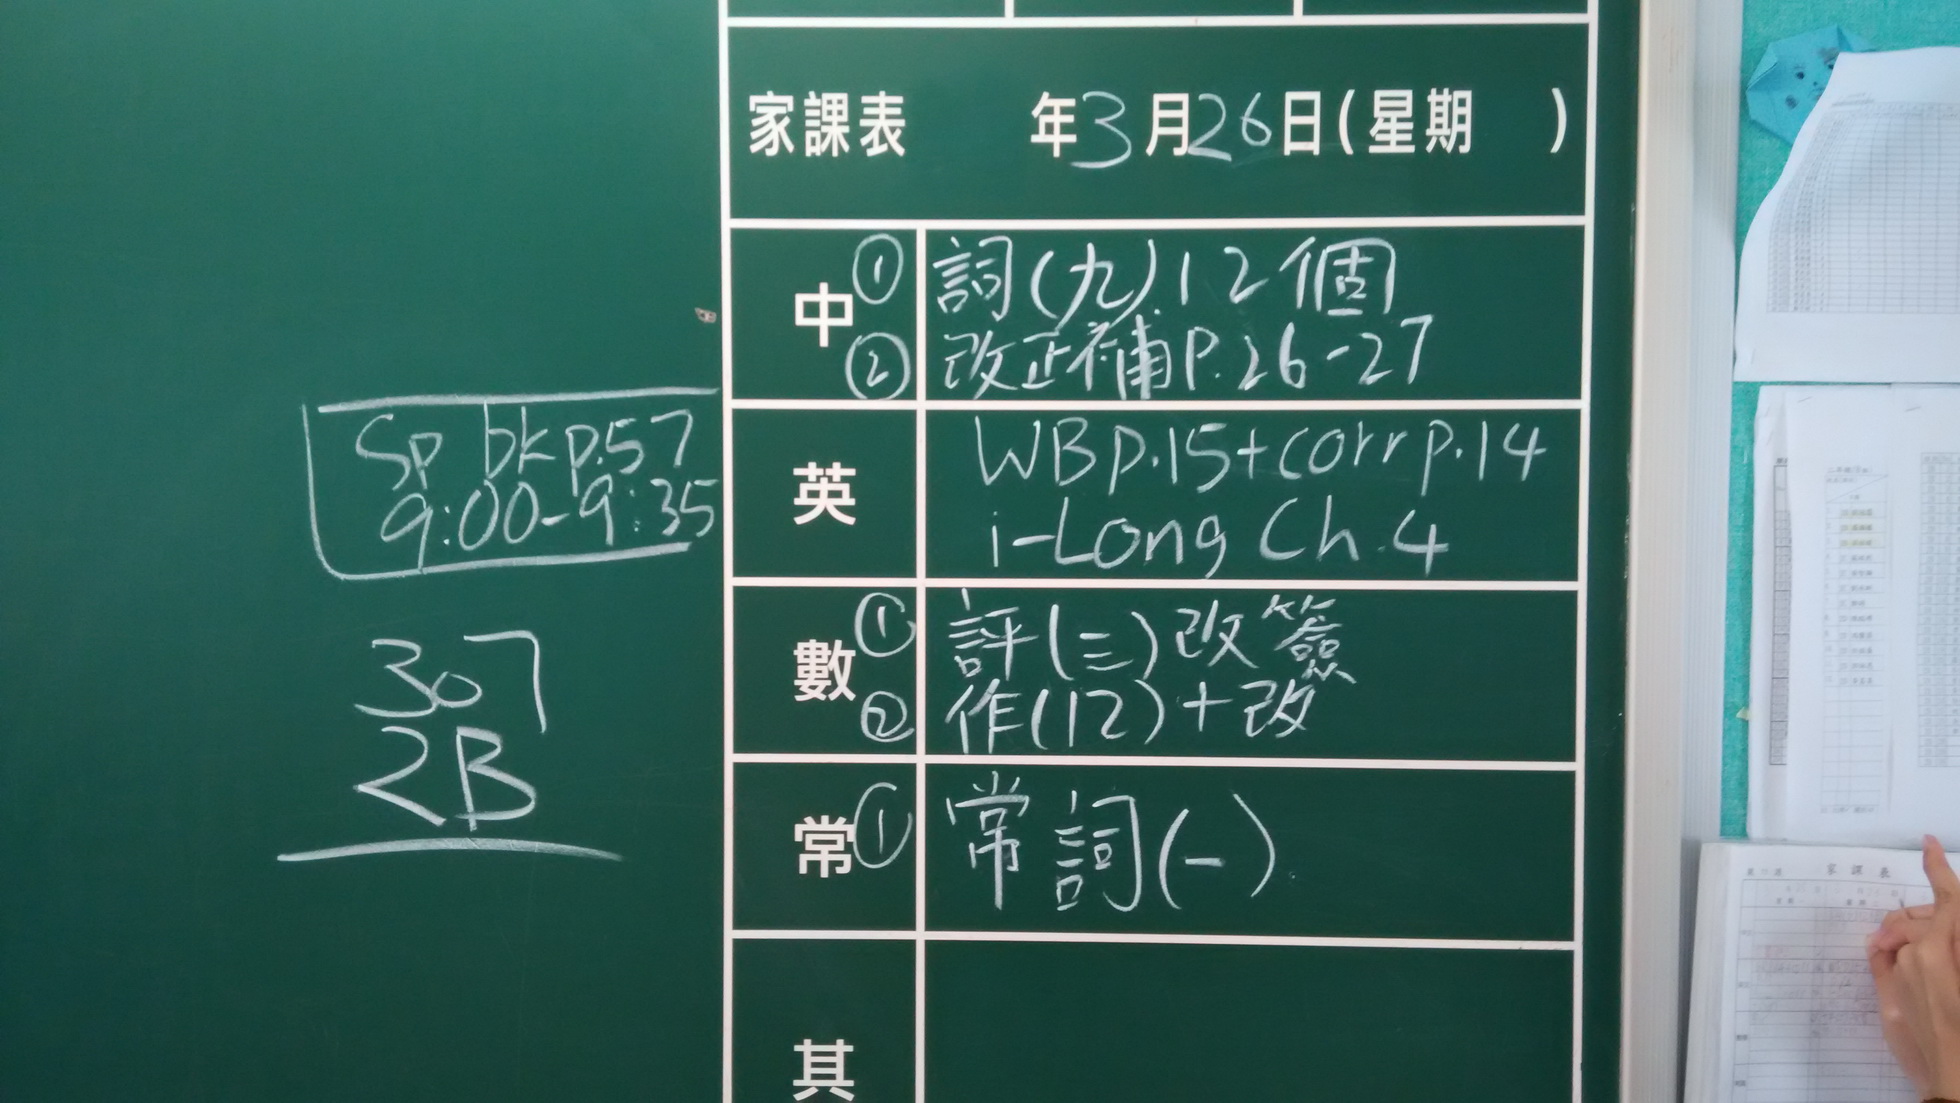 家課表 年3月26日(星期 )
中 ① 詞(九)12個
② 改正補P.26-27
英 WB p.15+corr p.14
i-Long Ch.4
數 ① 評(三)改簽
② 作(12)+改
常 ① 常詞(一)
其
Sp bk p.57
9:00-9:35
307
2B
家課表